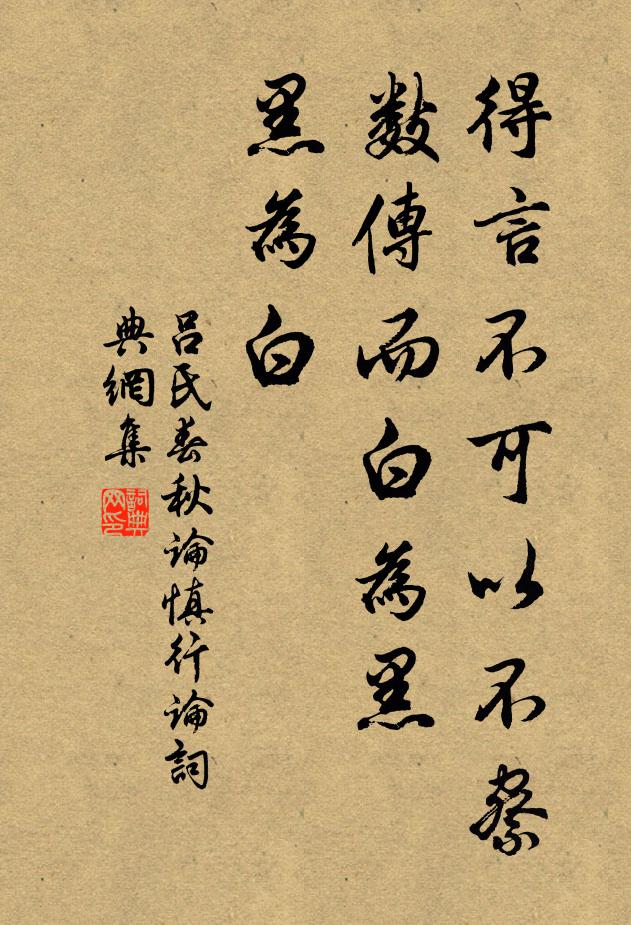 得言不可以不察
數傳而白為黑
黑為白
吕氏春秋論慎行論詞
典網集
詞典
网印